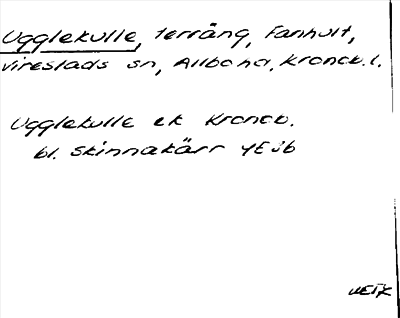 Ugglekulle, terräng, Fanhult,
Vireslads sn, Allbo hd, Kronob. l.
Ugglekulle ek Kronob.
bl. Skinnakärr 4E Jb